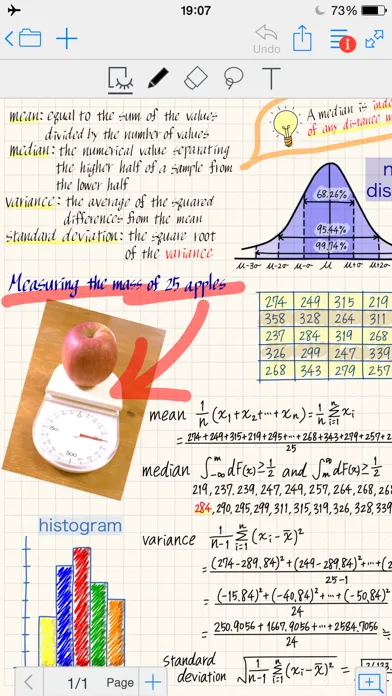 19:07
73%
Undo
T
mean: equal to the sum of the values
divided by the number of values
median: the numerical value separating
the higher half of a sample from
the lower half
variance: the average of the squared
differences from the mean
standard deviation: the square root
of the variance
A median is
of any distance
68.26%
95.44%
99.74%
μ-3σ μ-2σ μ-σ μ μ+σ μ+2σ
Measuring the mass of 25 apples
274 249 315 219
358 328 264 311
237 284 319 268
326 299 247 339
268 343 279 257
mean 1/n (x₁+x₂+⋯+xₙ) = 1/n Σⁿᵢ₌₁ xᵢ
= 274+249+315+219+295+⋯+268+343+279+257+2
25
median ∫ᵐ₋∞ dF(x) ≥ 1/2 and ∫∞ₘ dF(x) ≥ 1/2
219, 237, 239, 247, 249, 257, 264, 268, 268
284, 290, 295, 299, 311, 315, 319, 326, 328, 339
histogram
variance 1/n-1 Σⁿᵢ₌₁ (xᵢ - x̄)²
= (274-289.84)² + (249-289.84)² + ⋯ + (2
25-1
= (-15.84)² + (-40.84)² + ⋯ + (-50.84)²
24
= 250.9056 + 1667.9056 + ⋯ + 2584.7056
24
standard
deviation √1/n-1 Σⁿᵢ₌₁ (xᵢ - x̄)² =
1/1 Page